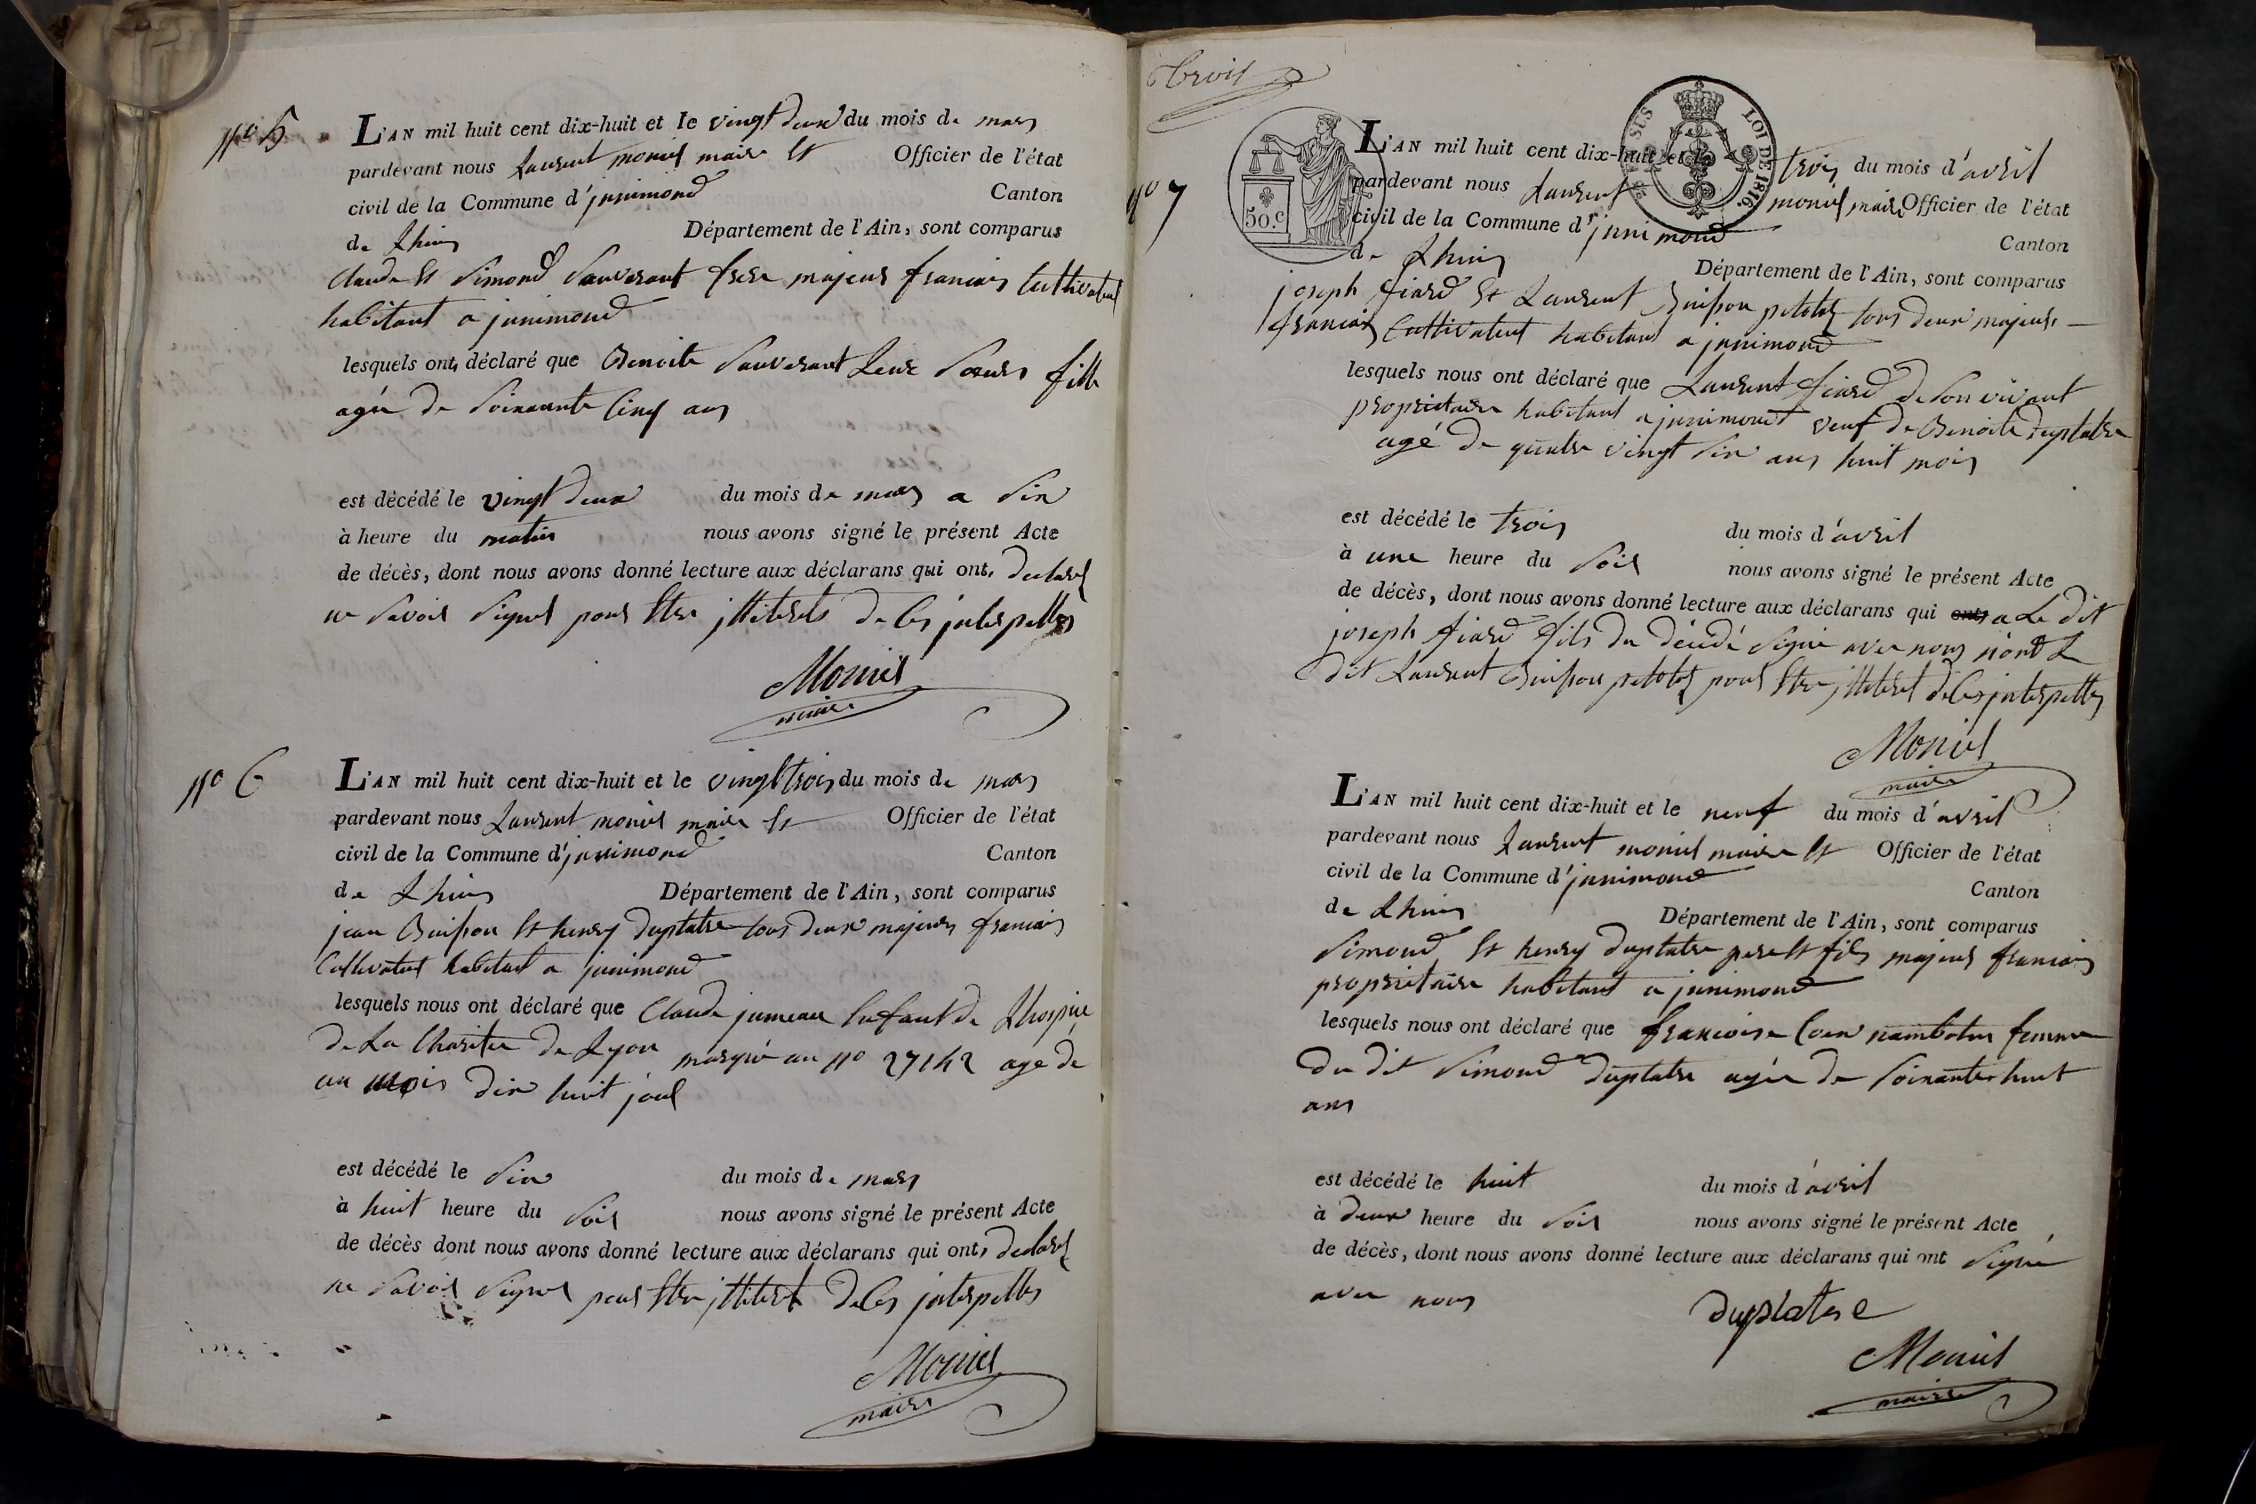 n° 5
L'AN mil huit cent dix-huit et le vingt deux du mois de mars
pardevant nous Laurent monier maire et Officier de l'état
civil de la Commune d'jnnimond Canton
de Lhuis Département de l'Ain, sont comparus
Claude et Simond Sauverant frere majeur francais Cultivateur
habitant a jnnimond
lesquels ont déclaré que Benoite Sauverant Leur Soeur fille
agée de Soixante Cinq ans
est décédé le vingt deux du mois de mars a Six
à heure du matin nous avons signé le présent Acte
de décès, dont nous avons donné lecture aux déclarans qui ont, declaré
ne Savoir Signer pour Etre jlliterets de Ces jnterpelles
Monier
maire
n° 6
L'AN mil huit cent dix-huit et le vingt trois du mois de mars
pardevant nous Laurent monier maire et Officier de l'état
civil de la Commune d'jnnimond Canton
de Lhuis Département de l'Ain, sont comparus
jean Buisson et henry duplatre tous deux majeurs francais
Cultivateur habitant a jnnimond
lesquels nous ont déclaré que Claude jumeau Enfant de Lhospice
de La Charitée de Lyon marqué au n° 27142 agé de
un mois dix huit jour
est décédé le Six du mois de mars
à huit heure du Soir nous avons signé le présent Acte
de décès dont nous avons donné lecture aux déclarans qui ont, declaré
ne Savoir Signer pour Etre jlliteret de Ces jnterpelles
Monier
maire
trois
50.C
LOI DE 1816.
n° 7
L'AN mil huit cent dix-huit et le trois du mois d'avril
pardevant nous Laurent monier maire Officier de l'état
civil de la Commune d'jnnimond Canton
de Lhuis Département de l'Ain, sont comparus
joseph fiard et Laurent Buisson petolas tous deux majeurs
francais Cultivateur habitant a jnnimond
lesquels nous ont déclaré que Laurent fiard de Son vivant
proprietaire habitant a jnnimond veuf de Benoite duplatre
agé de quatre vingt Six ans huit mois
est décédé le trois du mois d'avril
à une heure du Soir nous avons signé le présent Acte
de décès, dont nous avons donné lecture aux déclarans qui ont, a Le dit
joseph fiard fils du décédé Signé avec nous n'ont Le
dit Laurent Buisson petolas pour Etre jlliteret de Ces jnterpelles
Monier
maire
L'AN mil huit cent dix-huit et le neuf du mois d'avril
pardevant nous Laurent monier maire et Officier de l'état
civil de la Commune d'jnnimond Canton
de Lhuis Département de l'Ain, sont comparus
Simond et henry duplatre pere et fils majeur francais
proprietaire habitant a jnnimond
lesquels nous ont déclaré que francoise femme
du dit Simond duplatre agée de Soixante huit
ans
est décédé le huit du mois d'avril
à deux heure du Soir nous avons signé le présent Acte
de décès, dont nous avons donné lecture aux déclarans qui ont Signé
avec nous
duplatre
Monier
maire